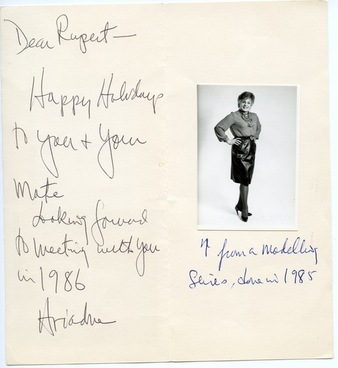 Dear Rupert—
Happy Holidays
to You & Your
Mate
Looking forward
to meeting with You
in 1986
Ariadne
↑ from a Modelling
Series, done in 1985